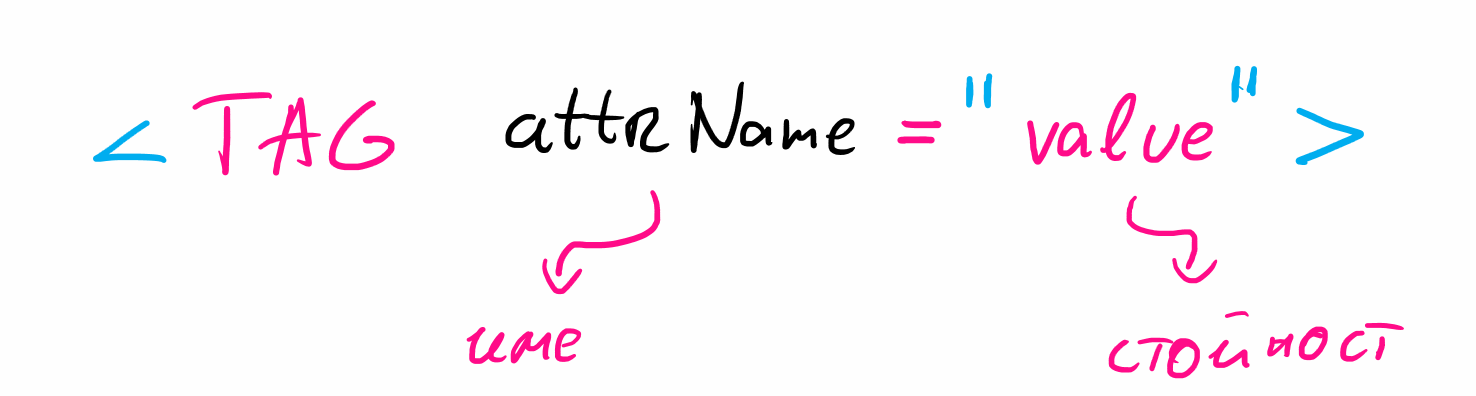 <TAG attrName="value">
име стойност